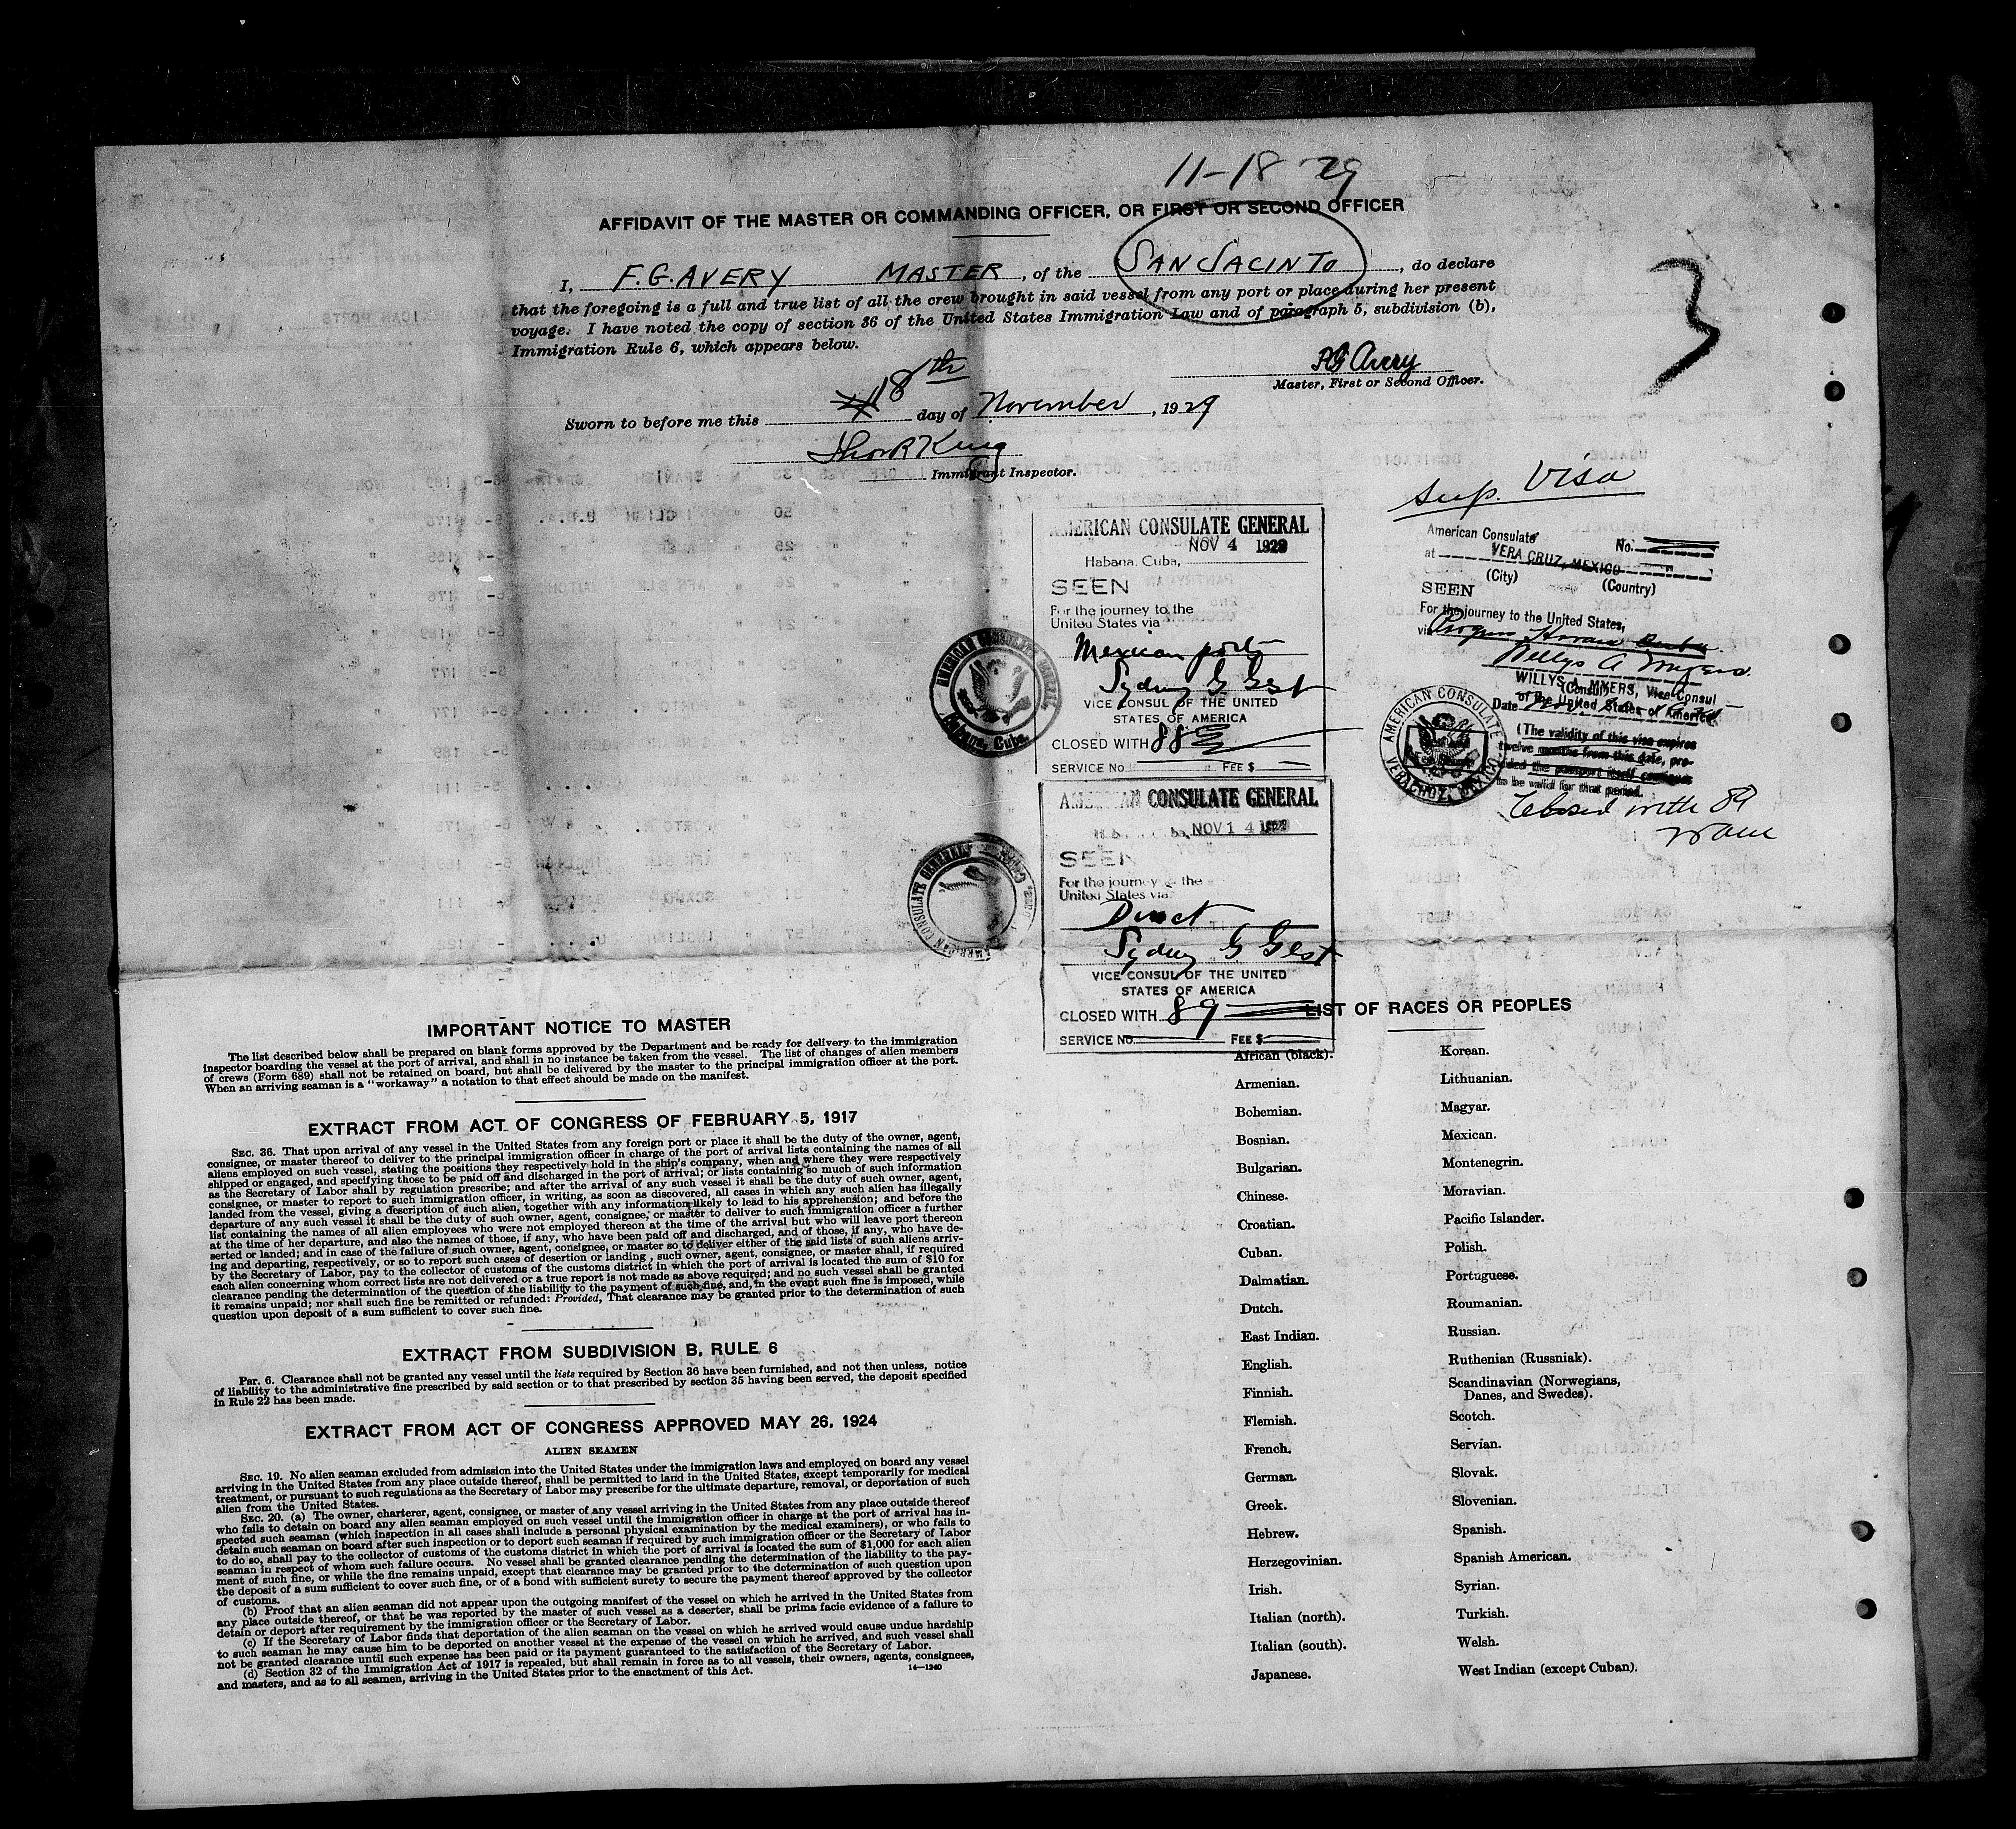 11-18 29
AFFIDAVIT OF THE MASTER OR COMMANDING OFFICER, OR FIRST OR SECOND OFFICER
I, F.G. AVERY MASTER, of the SAN JACINTO, do declare
that the foregoing is a full and true list of all the crew brought in said vessel from any port or place during her present
voyage. I have noted the copy of section 36 of the United States Immigration Law and of paragraph 5, subdivision (b),
Immigration Rule 6, which appears below.
3
FG Avery
Master, First or Second Officer.
Sworn to before me this 18th day of November, 1929
King
Immigrant Inspector.
AMERICAN CONSULATE GENERAL
NOV 4 1929
Habana, Cuba,
SEEN
For the journey to the
United States via
Mexican ports
Sydney G Gest
VICE CONSUL OF THE UNITED
STATES OF AMERICA
CLOSED WITH 88
SERVICE No. FEE $
AMERICAN CONSULATE GENERAL
Habana, Cuba.
Sup. Visa
American Consulate No.
at VERA CRUZ, MEXICO
(City) (Country)
SEEN
For the journey to the United States,
via
Willys A Myers
WILLYS A. MYERS, Vice Consul
(Consul)
of the United States of America
Date
(The validity of this visa expires
twelve months from this date, pro-
vided the passport itself continues
to be valid for that period.
Closed with 89
WAM
AMERICAN CONSULATE
VERACRUZ, MEXICO
AMERICAN CONSULATE GENERAL
NOV 14 1929
SEEN
For the journey to the
United States via
Direct
Sydney G Gest
VICE CONSUL OF THE UNITED
STATES OF AMERICA
CLOSED WITH 89
SERVICE No. FEE $
AMERICAN CONSULATE GENERAL
IMPORTANT NOTICE TO MASTER
The list described below shall be prepared on blank forms approved by the Department and be ready for delivery to the immigration
inspector boarding the vessel at the port of arrival, and shall in no instance be taken from the vessel. The list of changes of alien members
of crews (Form 689) shall not be retained on board, but shall be delivered by the master to the principal immigration officer at the port.
When an arriving seaman is a "workaway" a notation to that effect should be made on the manifest.
EXTRACT FROM ACT OF CONGRESS OF FEBRUARY 5, 1917
SEC. 36. That upon arrival of any vessel in the United States from any foreign port or place it shall be the duty of the owner, agent,
consignee, or master thereof to deliver to the principal immigration officer in charge of the port of arrival lists containing the names of all
aliens employed on such vessel, stating the positions they respectively hold in the ship's company, when and where they were respectively
shipped or engaged, and specifying those to be paid off and discharged in the port of arrival; or lists containing so much of such information
as the Secretary of Labor shall by regulation prescribe; and after the arrival of any such vessel it shall be the duty of such owner, agent,
consignee, or master to report to such immigration officer, in writing, as soon as discovered, all cases in which any such alien has illegally
landed from the vessel, giving a description of such alien, together with any information likely to lead to his apprehension; and before the
departure of any such vessel it shall be the duty of such owner, agent, consignee, or master to deliver to such immigration officer a further
list containing the names of all alien employees who were not employed thereon at the time of the arrival but who will leave port thereon
at the time of her departure, and also the names of those, if any, who have been paid off and discharged, and of those, if any, who have de-
serted or landed; and in case of the failure of such owner, agent, consignee, or master so to deliver either of the said lists of such aliens arriv-
ing and departing, respectively, or so to report such cases of desertion or landing, such owner, agent, consignee, or master shall, if required
by the Secretary of Labor, pay to the collector of customs of the customs district in which the port of arrival is located the sum of $10 for
each alien concerning whom correct lists are not delivered or a true report is not made as above required; and no such vessel shall be granted
clearance pending the determination of the question of the liability to the payment of such fine, and, in the event such fine is imposed, while
it remains unpaid; nor shall such fine be remitted or refunded: Provided, That clearance may be granted prior to the determination of such
question upon deposit of a sum sufficient to cover such fine.
EXTRACT FROM SUBDIVISION B, RULE 6
Par. 6. Clearance shall not be granted any vessel until the lists required by Section 36 have been furnished, and not then unless, notice
of liability to the administrative fine prescribed by said section or to that prescribed by section 35 having been served, the deposit specified
in Rule 22 has been made.
EXTRACT FROM ACT OF CONGRESS APPROVED MAY 26, 1924
ALIEN SEAMEN
SEC. 19. No alien seaman excluded from admission into the United States under the immigration laws and employed on board any vessel
arriving in the United States from any place outside thereof, shall be permitted to land in the United States, except temporarily for medical
treatment, or pursuant to such regulations as the Secretary of Labor may prescribe for the ultimate departure, removal, or deportation of such
alien from the United States.
SEC. 20. (a) The owner, charterer, agent, consignee, or master of any vessel arriving in the United States from any place outside thereof
who fails to detain on board any alien seaman employed on such vessel until the immigration officer in charge at the port of arrival has in-
spected such seaman (which inspection in all cases shall include a personal physical examination by the medical examiners), or who fails to
detain such seaman on board after such inspection or to deport such seaman if required by such immigration officer or the Secretary of Labor
to do so, shall pay to the collector of customs of the customs district in which the port of arrival is located the sum of $1,000 for each alien
seaman in respect of whom such failure occurs. No vessel shall be granted clearance pending the determination of the liability to the pay-
ment of such fine, or while the fine remains unpaid, except that clearance may be granted prior to the determination of such question upon
the deposit of a sum sufficient to cover such fine, or of a bond with sufficient surety to secure the payment thereof approved by the collector
of customs.
(b) Proof that an alien seaman did not appear upon the outgoing manifest of the vessel on which he arrived in the United States from
any place outside thereof, or that he was reported by the master of such vessel as a deserter, shall be prima facie evidence of a failure to
detain or deport after requirement by the immigration officer or the Secretary of Labor.
(c) If the Secretary of Labor finds that deportation of the alien seaman on the vessel on which he arrived would cause undue hardship
to such seaman he may cause him to be deported on another vessel at the expense of the vessel on which he arrived, and such vessel shall
not be granted clearance until such expense has been paid or its payment guaranteed to the satisfaction of the Secretary of Labor.
(d) Section 32 of the Immigration Act of 1917 is repealed, but shall remain in force as to all vessels, their owners, agents, consignees,
and masters, and as to all seamen, arriving in the United States prior to the enactment of this Act.
14—1240
LIST OF RACES OR PEOPLES
African (black).
Armenian.
Bohemian.
Bosnian.
Bulgarian.
Chinese.
Croatian.
Cuban.
Dalmatian.
Dutch.
East Indian.
English.
Finnish.
Flemish.
French.
German.
Greek.
Hebrew.
Herzegovinian.
Irish.
Italian (north).
Italian (south).
Japanese.
Korean.
Lithuanian.
Magyar.
Mexican.
Montenegrin.
Moravian.
Pacific Islander.
Polish.
Portuguese.
Roumanian.
Russian.
Ruthenian (Russniak).
Scandinavian (Norwegians,
Danes, and Swedes).
Scotch.
Servian.
Slovak.
Slovenian.
Spanish.
Spanish American.
Syrian.
Turkish.
Welsh.
West Indian (except Cuban).